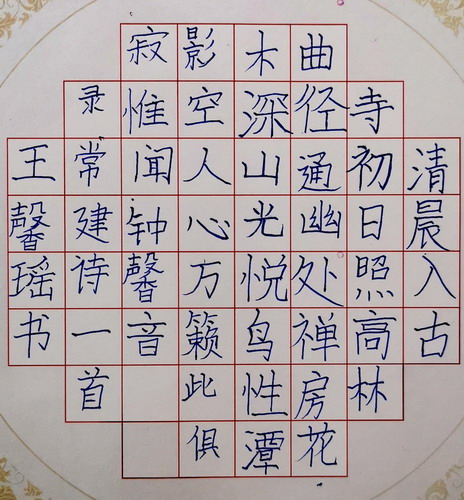 清晨入古
寺初日照高林
曲径通幽处禅房花
木深山光悦鸟性潭
影空人心方籁此俱
寂惟闻钟馨音
录常建诗一首
王馨瑶书